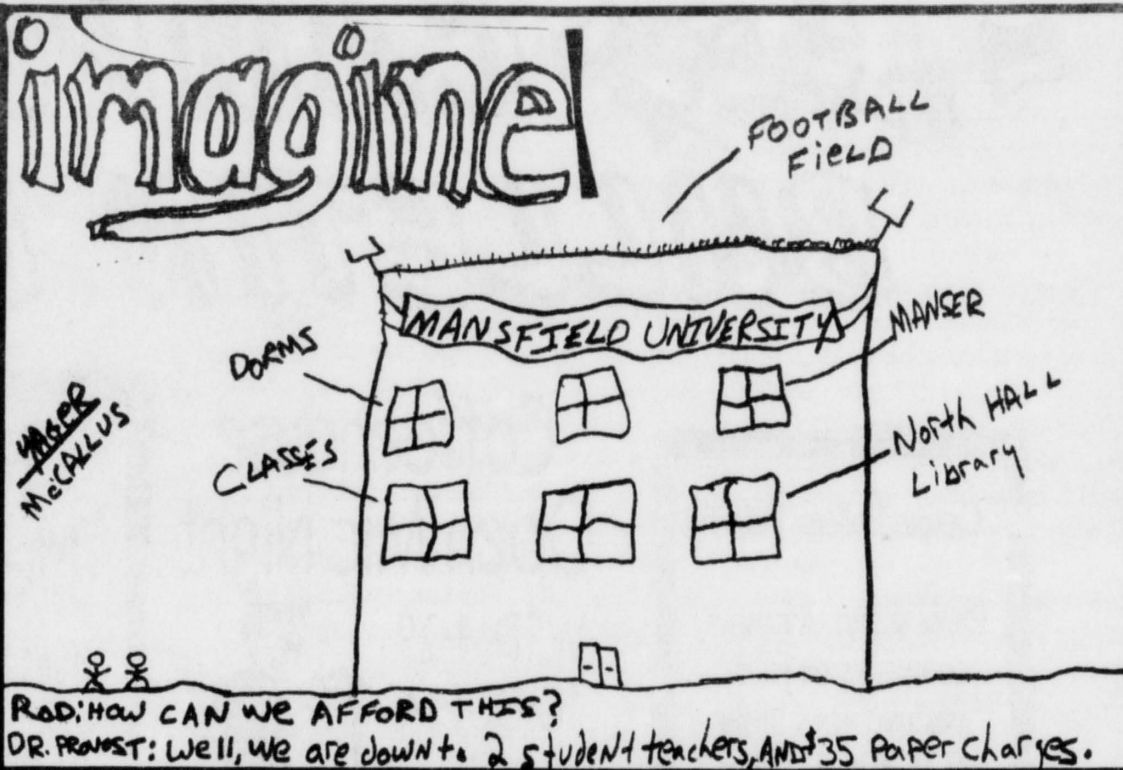 imagine
FOOTBALL
FIELD
MANSFIELD UNIVERSITY
MANSER
DORMS
North HALL
Library
CLASSES
YAGER
McCALLUS
ROD: HOW CAN WE AFFORD THIS?
DR. PROVOST: Well, we are down to 2 student teachers, AND $35 Paper charges.